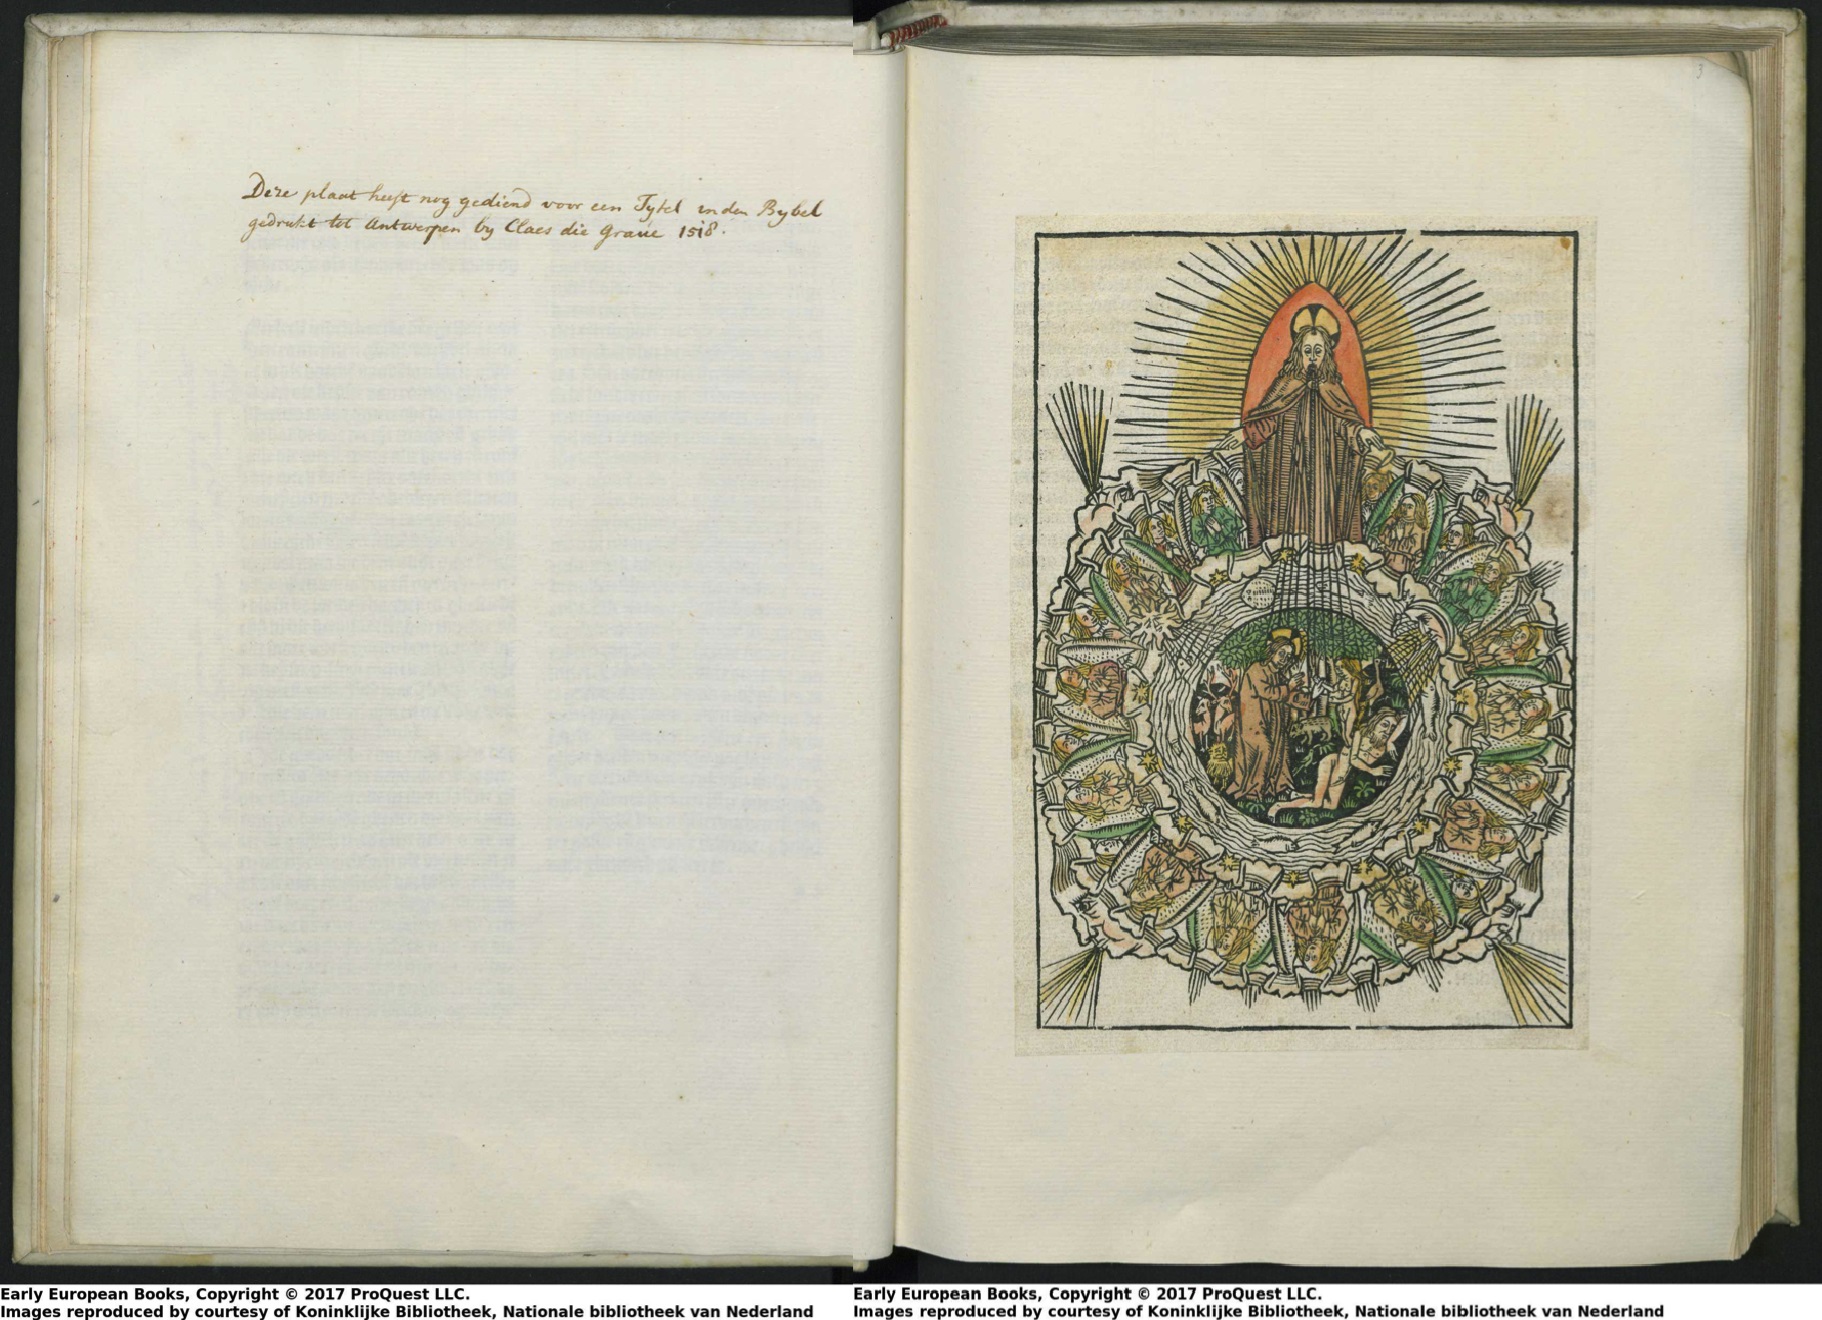 Deze plaat heeft nog gediend voor een Tytel in den Bybel
gedrukt tot Antwerpen by Claes die Grave 1518.
3
Early European Books, Copyright © 2017 ProQuest LLC.
Images reproduced by courtesy of Koninklijke Bibliotheek, Nationale bibliotheek van Nederland
Early European Books, Copyright © 2017 ProQuest LLC.
Images reproduced by courtesy of Koninklijke Bibliotheek, Nationale bibliotheek van Nederland